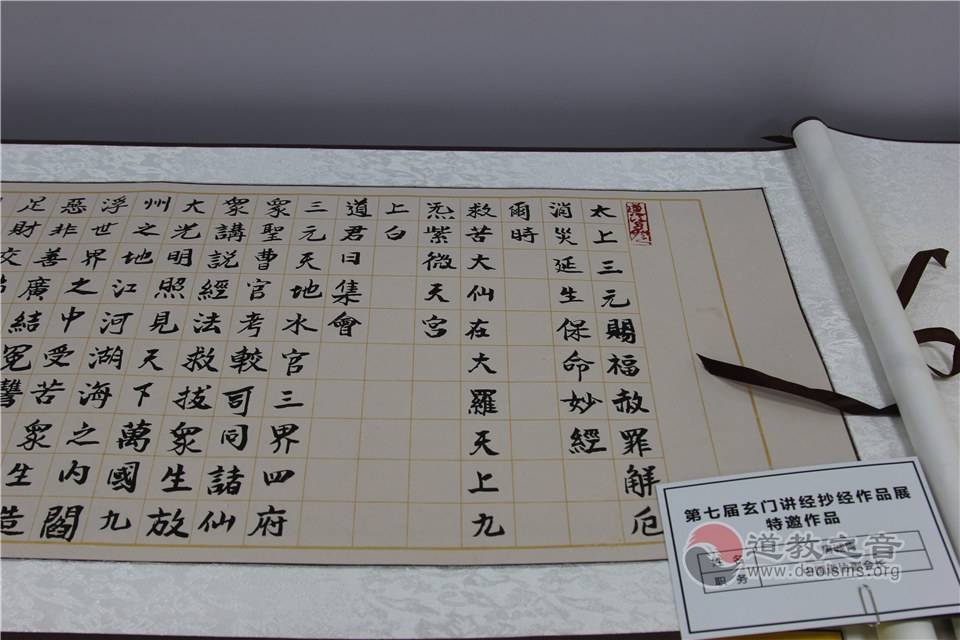 太上三元賜福赦罪解厄
消災延生保命妙經
爾時
救苦大仙在大羅天上九
炁紫微天宮
上白
道君曰集會
三元天地水官三界四府
眾聖曹官考較司同諸仙
眾講説經法救拔眾生放
大光明照見天下萬國九
州之地江河湖海之内閻
浮世界之中受苦眾生造
惡非善廣結冤讐
足財交
第七届玄门讲经抄经作品展
特邀作品
姓名
职务
道教之音
www.daoisms.org